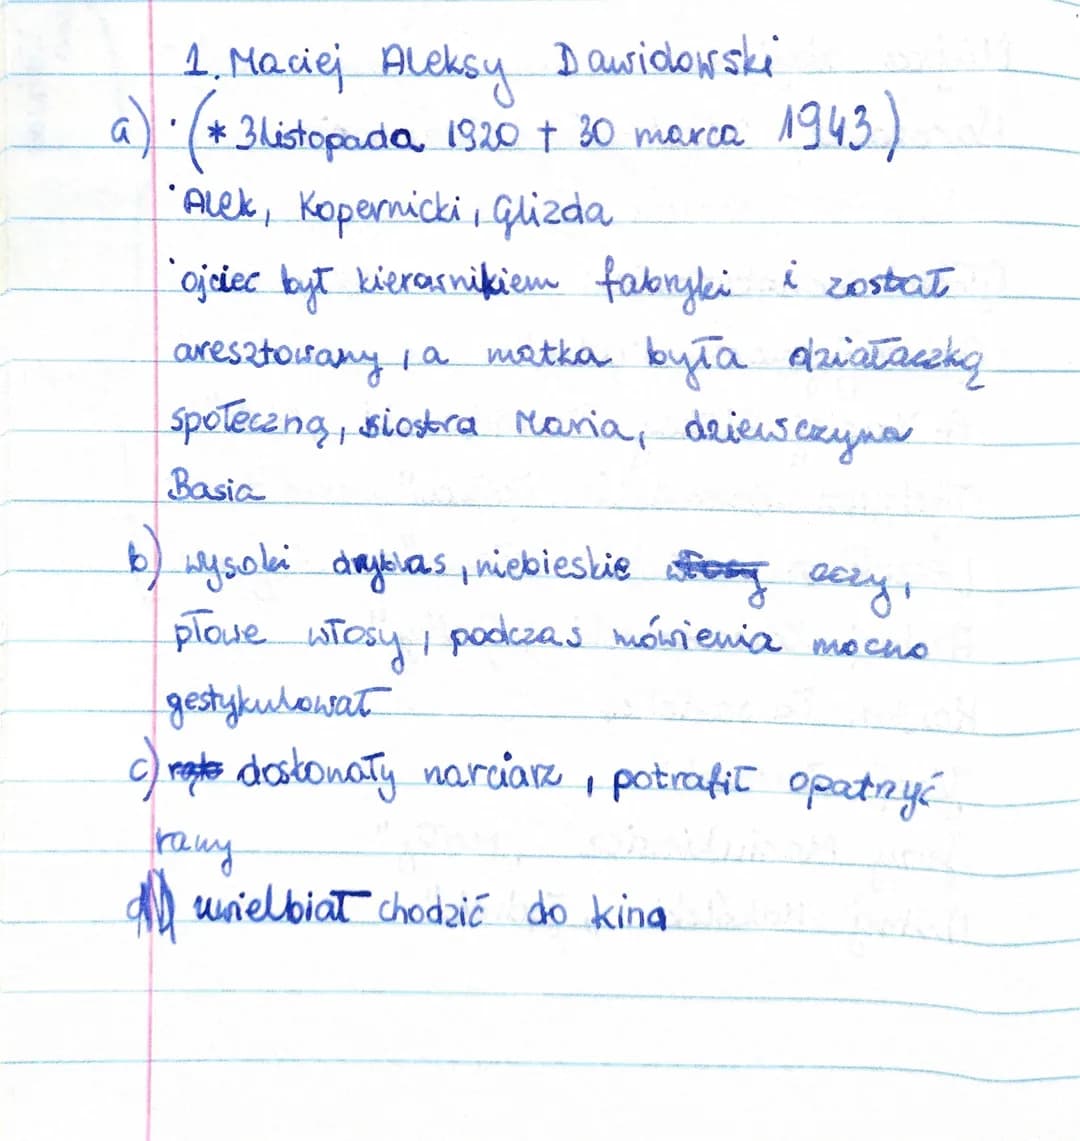 1. Maciej Aleksy Dawidowski
a) · (* 3 listopada 1920 † 30 marca 1943)
· Alek, Kopernicki, Glizda
· ojciec był kierownikiem fabryki i został
aresztowany, a matka była działaczką
społeczną, siostra Maria, dziewczyna
Basia
b) wysoki dryblas, niebieskie włosy oczy,
płowe włosy, podczas mówienia mocno
gestykulował
c) doskonały narciarz, potrafił opatrzyć
rany
d) uwielbiał chodzić do kina